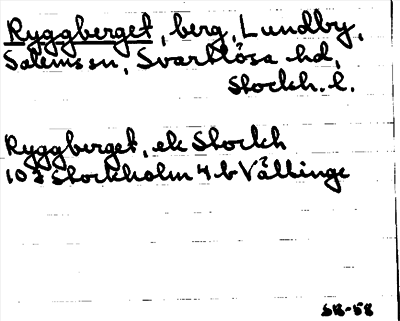 Ryggberget, berg, Lundby,
Salems sn, Svartlösa hd,
Stockh. l.
Ryggberget, ek Stockh
10 I Stockholm 4 b Vällinge
SB-58